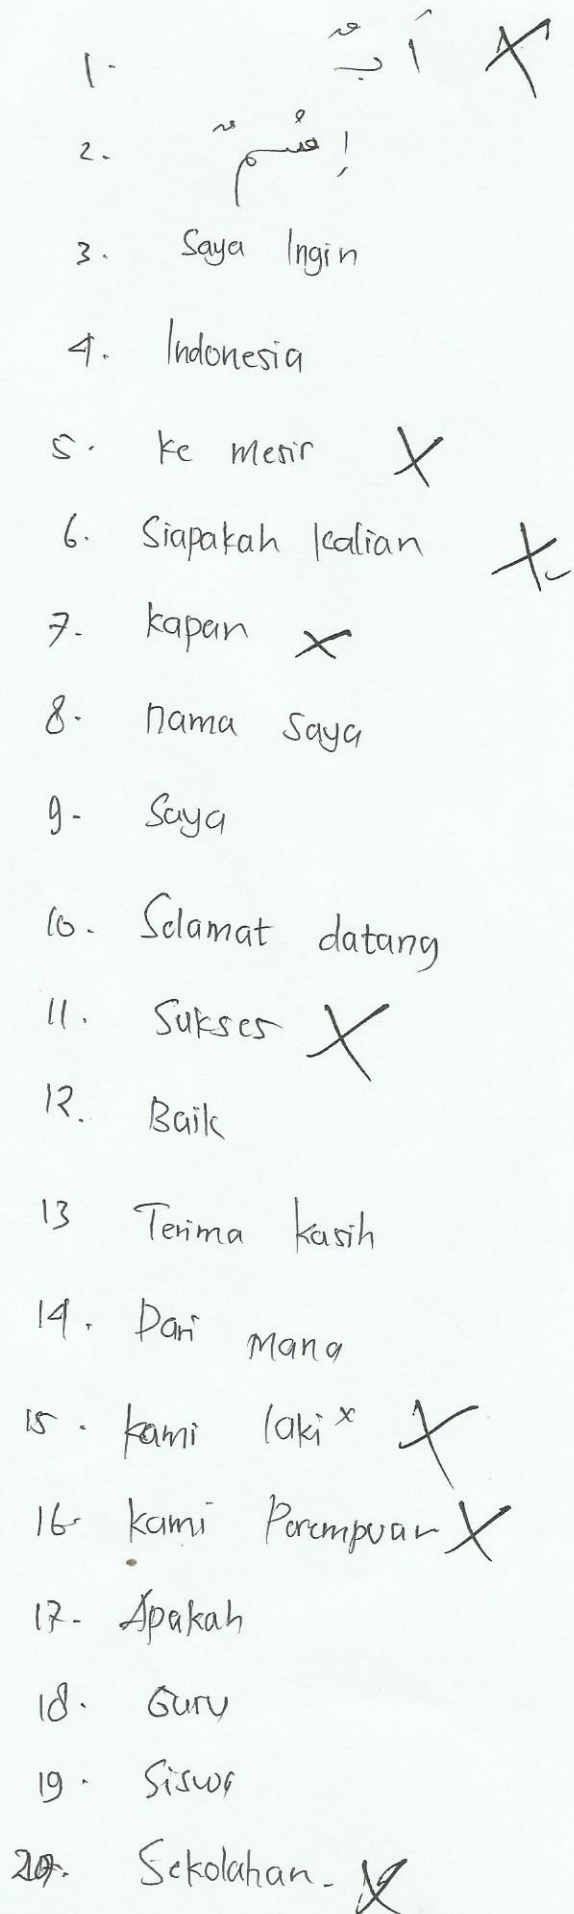 1. أَ بٌ X
2. إِسْمٌ
3. Saya Ingin
4. Indonesia
5. ke mesir X
6. Siapakah kalian X
7. kapan X
8. nama saya
9. Saya
10. Selamat datang
11. Sukses X
12. Baik
13 Terima kasih
14. Dari mana
15. kami laki x X
16. kami Perempuan X
17. Apakah
18. Guru
19. Siswa
20. Sekolahan. X